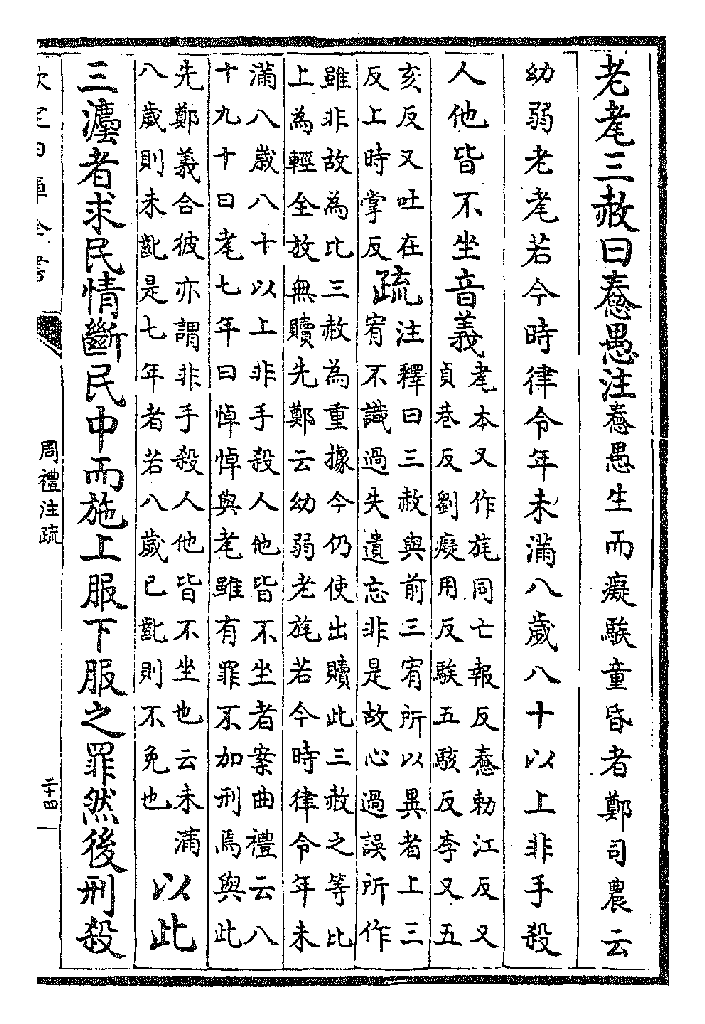 老耄三赦曰憃愚注憃愚生而癡騃童昏者鄭司農云
幼弱老耄若今時律令年未滿八歲八十以上非手殺
人他皆不坐音義
耄本又作旄同亡報反憃勅江反又
貞巷反劉癡用反騃五駭反李又五
亥反又吐在
反上時掌反
疏
注釋曰三赦與前三宥所以異者上三
宥不識過失遺忘非是故心過誤所作
雖非故為比三赦為重據今仍使出贖此三赦之等比
上為輕全放無贖先鄭云幼弱老旄若今時律令年未
滿八歲八十以上非手殺人他皆不坐者案曲禮云八
十九十曰耄七年曰悼悼與耄雖有罪不加刑焉與此
先鄭義合彼亦謂非手殺人他皆不坐也云未滿
八歲則未齔是七年者若八歲已齔則不免也
以此
三灋者求民情斷民中而施上服下服之罪然後刑殺
欽定四庫全書
周禮注疏
二十四